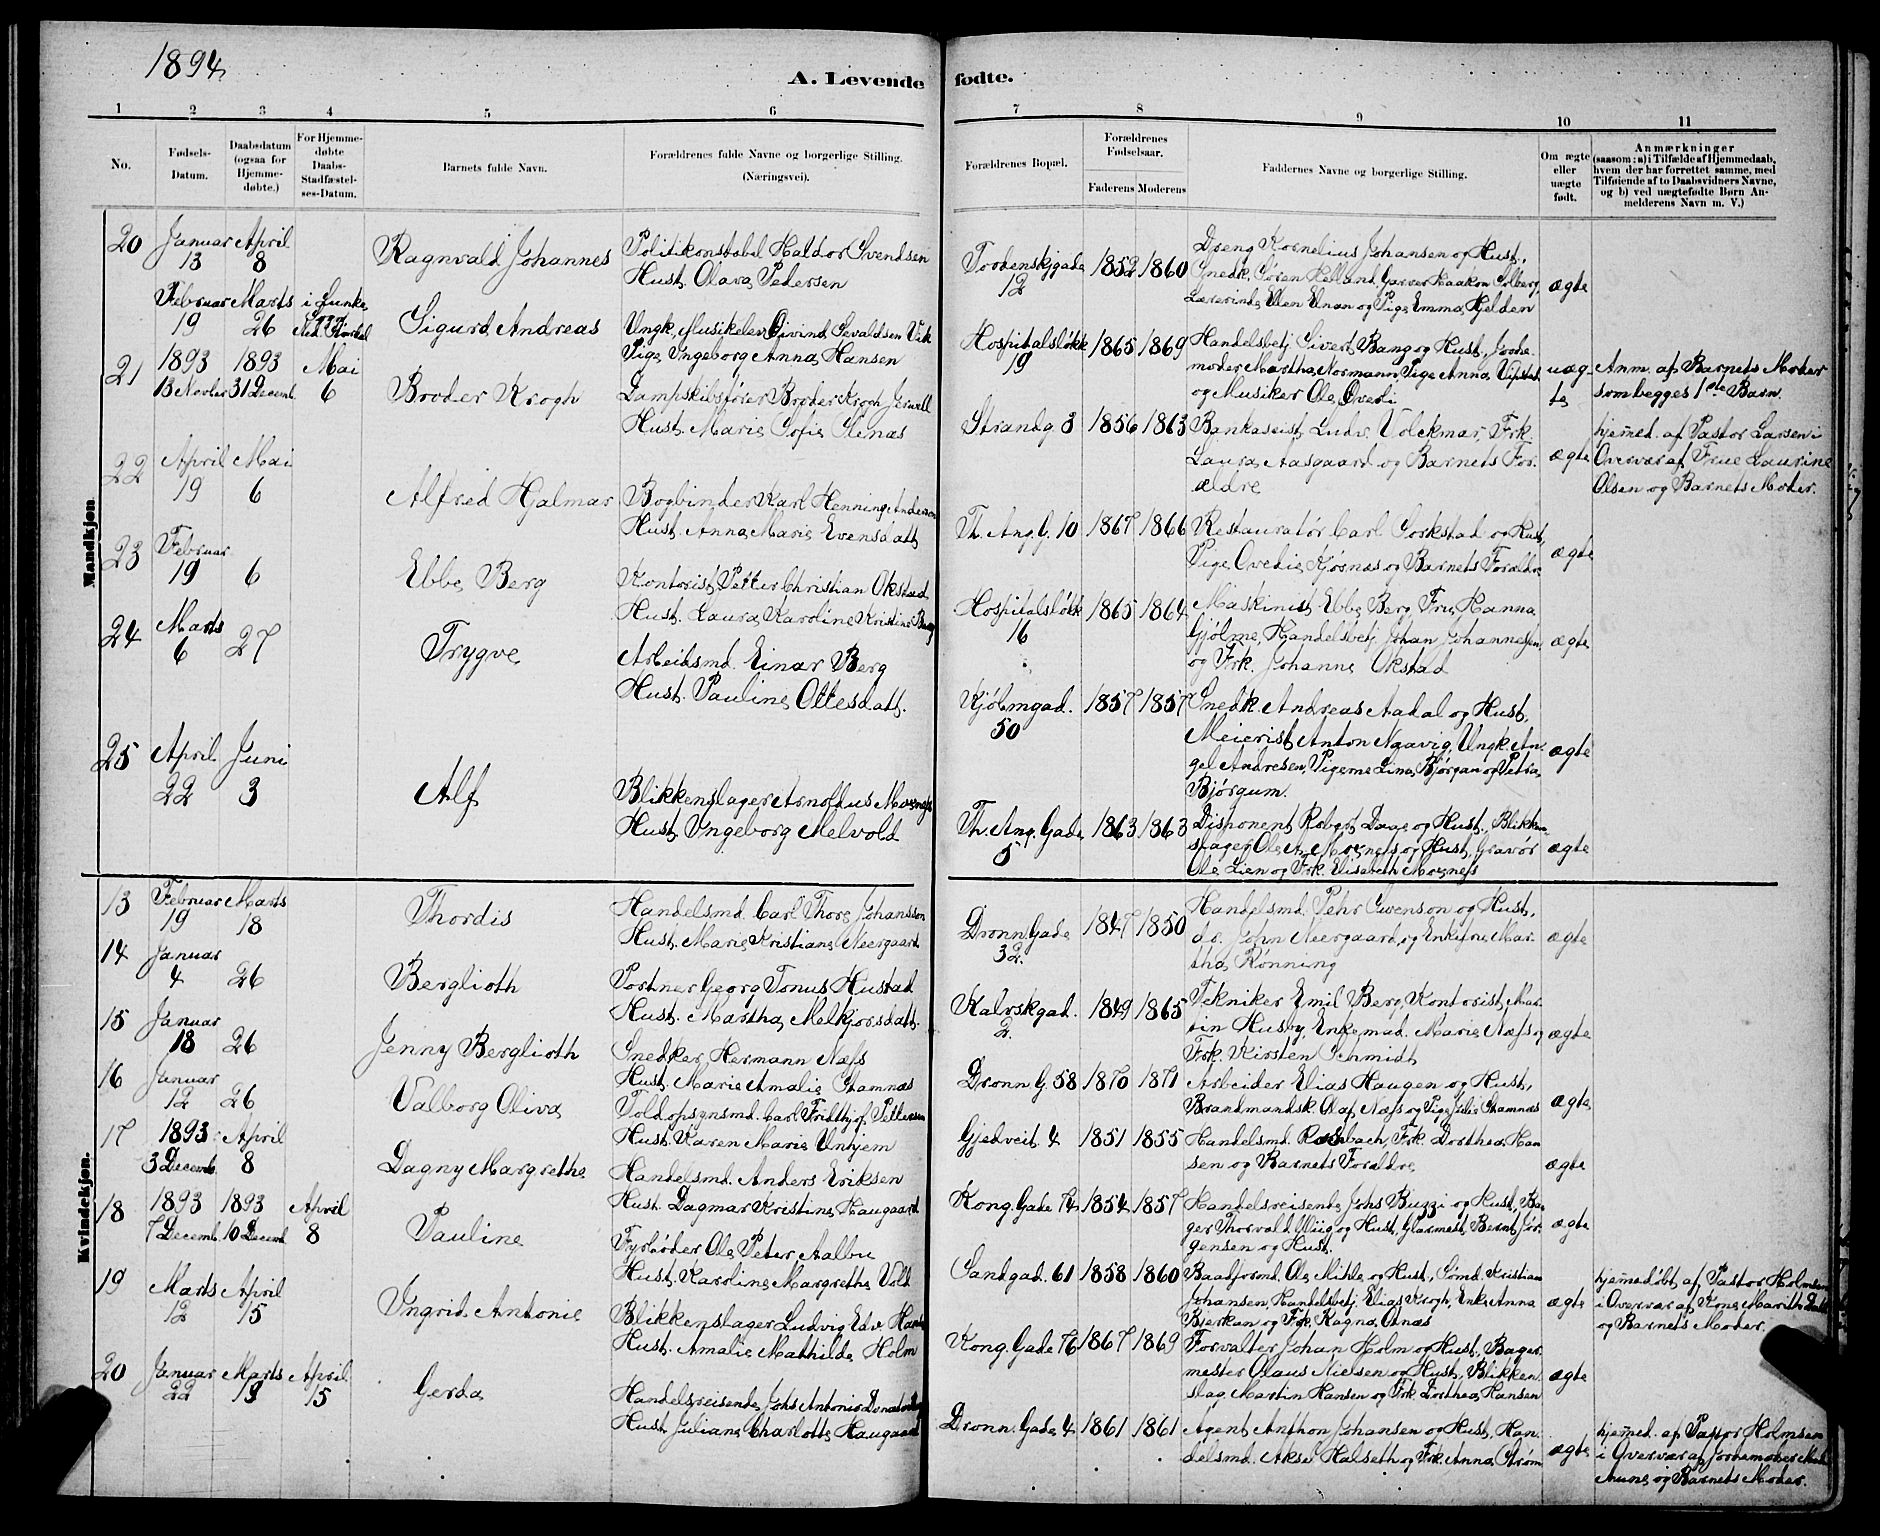 1894
A. Levende fødte.
1 2 3 4 5 6 7 8 9 10 11
No.
Fødsels-
Datum.
Daabsdatum
(ogsaa for
Hjemme-
døbte.)
For Hjemme-
døbte
Daabs-
Stadfæstel-
ses-Datum.
Barnets fulde Navn.
Forældrenes fulde Navne og borgerlige Stilling.
(Næringsvei).
Forældrenes Bopæl.
Forældrenes
Fødselsaar.
Faderens Moderens
Faddernes Navne og borgerlige Stilling.
Om ægte
eller
uægte
født.
Anmærkninger
(saasom: a) i Tilfælde af Hjemmedaab,
hvem der har forrettet samme, med
Tilføiende af to Daabsvidners Navne,
og b) ved uægtefødte Børn An-
melderens Navn m. V.)
Mandkjøn
20 Januar 13 April 8
Ragnvald Johannes
Politikonstabel Haldor Svendsen
Hust. Olava Pedersen
Tordenskjgade
12
1852 1860
Dreng Kornelius Johansen og Hust.,
Snedk. Søren Helland, Garver Haakon Solberg,
Lærerinde Ellen Unan og Pige Emma Hjelden
ægte
Februar 19 Marts 26
Sigurd Andreas
Ungk. Musikelev Eivind Sevaldsen Vik
Pige Ingeborg Anna Hansen
Hospitalsløkk
19
1865 1869
Handelsbetj. Sivert Bang og Hust., Jorde-
moder Martha Normann Pige Anna
og Musiker Ole Øverli
uæg-
te
Anm. af Barnets Moder
som begges 1ste Barn.
21 1893 13 Novber 1893 31 Decemb. Mai 6
Broder Krogh
Dampskibsfører Broder Krogh Jerwell
Hust. Marie Sofie Slenas
Strandg. 3
1856 1863
Bankassist. Ludv. Volckmar, Frk.
Laura Aasgaard og Barnets For-
ældre
ægte
hjemmed. af Pastor Larsen i
Overvær af Frue Laurine
Olsen og Barnets Moder.
22 April 19 Mai 6
Alfred Hjalmar
Bogbinder Karl Henning Anderson
Hust. Anna Marie Evensdatt.
Th. Ang. G. 10
1867 1866
Restauratør Carl Forkstad og Hust.,
Pige Ovedie Kjøsnæs og Barnets Forældre
ægte
23 Februar 19 6
Ebbe Berg
Kontorist Petter Christian Okstad
Hust. Laura Karoline Kristine Berg
Hospitalsløkk
16
1865 1864
Maskinist Ebbe Berg Frue Hanna
Gjølme, Handelsbetj. Johan Johannesen,
og Frk. Johanne Okstad
ægte
24 Marts 6 27
Trygve
Arbeidsmd. Einar Berg
Hust. Pauline Ottesdatt.
Kjøbmgad.
50
1857 1857
Snedk. Andreas Aadal og Hust.,
Meierist Anton Naavig, Ungk. An-
gel Andresen, Pigerne Lina Bjørgan og Petra
Bjørgum.
ægte
25 April 22 Juni 3
Alf
Blikkenslager Arnoldus Mosnæss
Hust. Ingeborg Melvold
Th. Ang. Gade
5
1863 1863
Disponent Robert Daae og Hust., Blikken-
slager Ole A. Mosnæs og Hust., Gravør
Ole Lien og Frk. Elisabeth Mosnæss
ægte
Kvindekjøn.
13 Februar 19 Marts 18
Thordis
Handelsmd. Carl Thore Johansson
Hust. Marie Kristiane Neergaard
Dronn. Gade
32.
1847 1850
Handelsmd. Pehr Swenson og Hust.,
do. John Neergaard, og Enkefrue Mar-
tha Rønning
ægte
14 Januar 4 26
Berglioth
Portner Georg Tonus Hustad
Hust. Martha Melkjorsdatt.
Kalvskgad.
2.
1849 1865
Tekniker Emil Berg, Kontorist Mar-
tin Husby, Enkemad. Marie Næss og
Frk. Kirsten Schmidt
ægte
15 Januar 18 26
Jenny Berglioth
Snedker Hermann Næss
Hust. Marie Amalie Stamnæs
Dronn G. 58
1870 1871
Arbeider Elias Haugen og Hust.,
Brandmandsk. Olaf Næss og Pige Julie Stamnæs
ægte
16 Januar 12 26
Valborg Oliva
Toldopsynsmd. Carl Fridthjof Pettersen
Hust. Karen Marie Unhjem
Gjedveit 4
1851 1855
Handelsmd. Rosbach, Frk. Dorthea Han-
sen og Barnets Forældre
ægte
17 1893 3 Decemb. April 8
Dagny Margrethe
Handelsmd. Anders Eriksen
Hust. Dagmar Kristine Haugaard
Kong. Gade 74
1854 1857
Handelsreisende Johs Buzzi og Hust., Ba-
ger Thorvald Wiig og Hust., Glarmest. Bernt Jør-
gensen og Hust.
ægte
18 1893 7 Decemb. 1893 10 Decemb. April 8
Pauline
Fyrbøder Ole Peter Aalbu
Hust. Karoline Margrethe Vold
Sandgad. 61
1858 1860
Baadformd. Ole Mihle og Hust., Sømd. Kristian
Johansen, Handelsbetj. Elias Krogh, Enke Anna
Bjerkan og Frk. Ragna Ønæs
ægte
hjemmedøbt af Pastor Holmsen
i Overvær af Kone Marith
og Barnets Moder.
19 Marts 12 April 15
Ingrid Antonie
Blikkenslager Ludvig Edv. Hansen
Hust. Amalie Mathilde Holm
Kong. Gade 76
1867 1869
Forvalter Johan Holm og Hust., Bager-
mester Olaus Nielsen og Hust., Blikken-
slag. Martin Hansen og Frk Dorthea Hansen
ægte
20 Januar 22 Marts 19 April 15
Gerda
Handelsreisende Johs Antonio
Hust. Juliane Charlotte Haugaard
Dronn. Gade 4
1861 1861
Agent Anthon Johansen og Hust., Han-
delsmd. Aksel Halseth og Frk. Anna Strøm
ægte
hjemmed. af Pastor Holmsen
i Overvær af Jordemoder
og Barnets Moder.